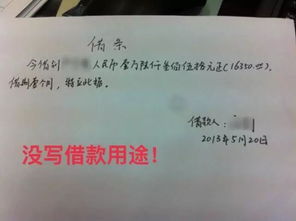 借条
今借到 人民币壹万陆仟叁佰伍拾元正(16350.00)
借期壹个月，特立此据。
借款人：
2013年5月20日
没写借款用途！